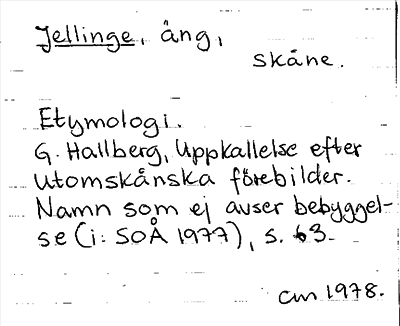 Jellinge, äng,
Skåne.
Etymologi.
G. Hallberg, Uppkallelse efter
utomskånska förebilder.
Namn som ej avser bebyggel-
se (i: SOÅ 1977), s. 63.
am 1978.